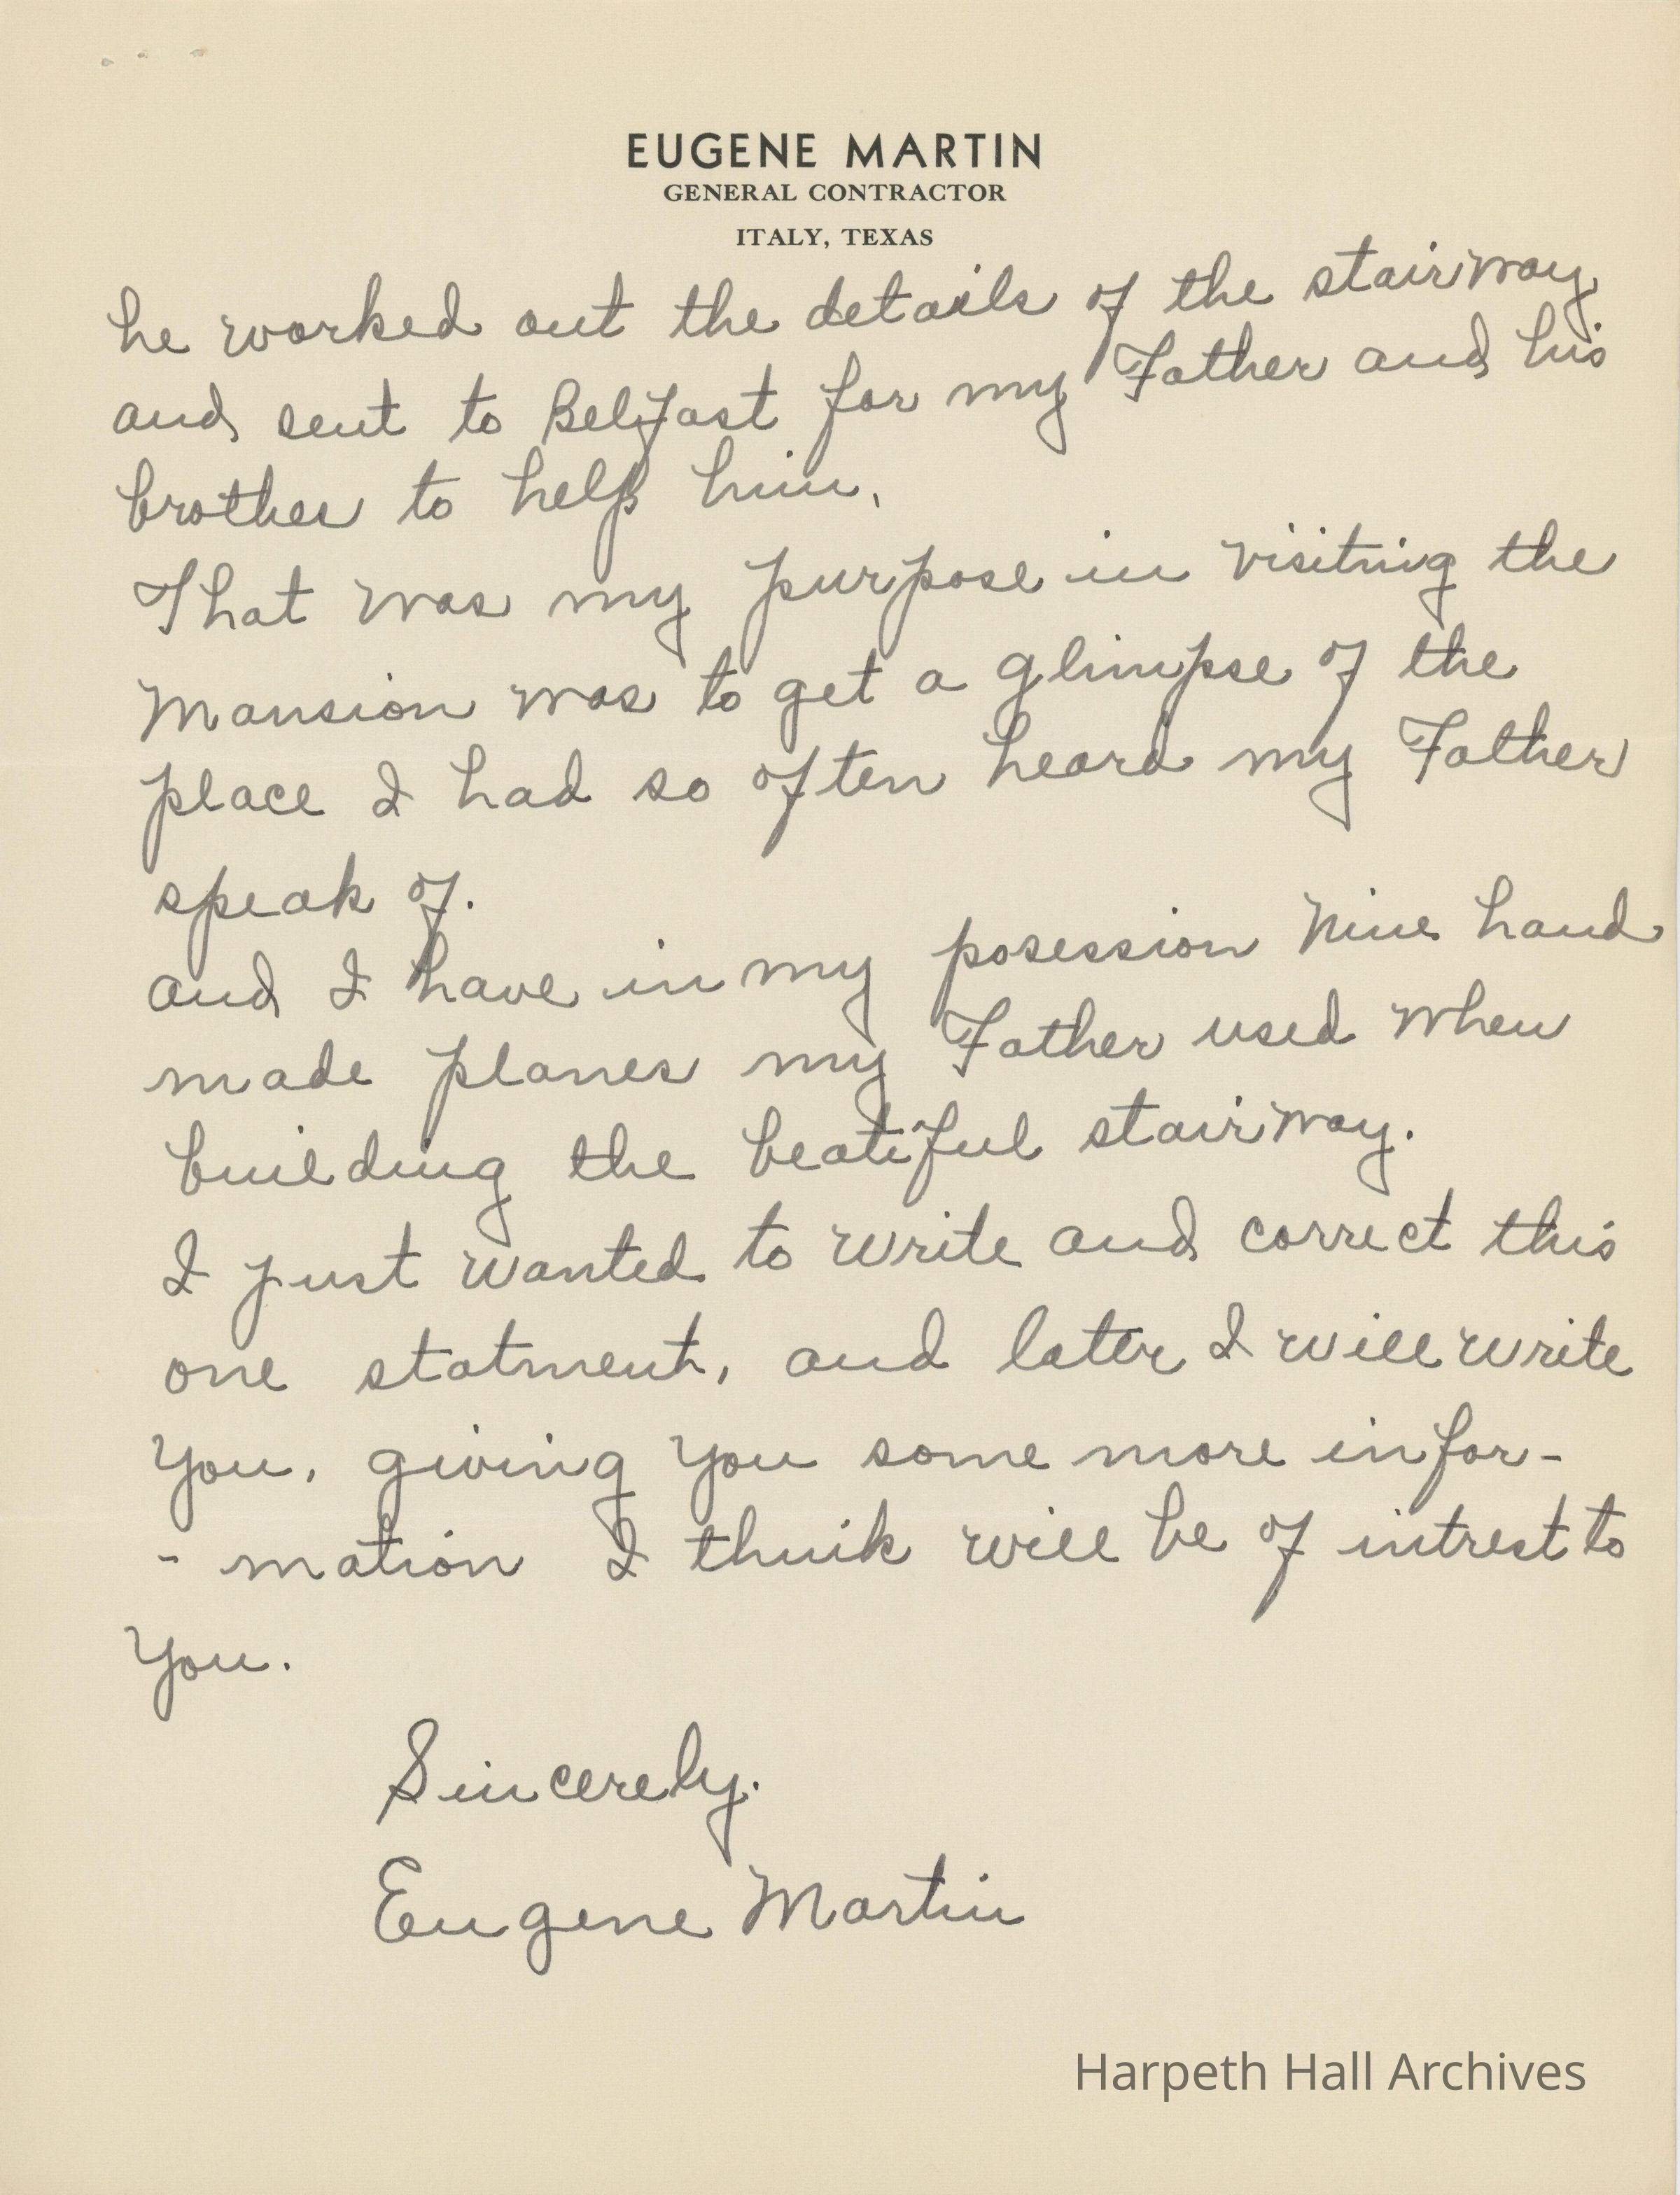 EUGENE MARTIN
GENERAL CONTRACTOR
ITALY, TEXAS
he worked out the details of the stairway
and sent to Belfast for my Father and his
brother to help him.
That was my purpose in visiting the
Mansion was to get a glimpse of the
place I had so often heard my Father
speak of.
and I have in my posession Nine hand
made planes my Father used when
building the beatiful stairway.
I just wanted to write and correct this
one statment, and later I will write
You, giving You some more infor-
- mation I think will be of intrest to
You.
Sincerely.
Eugene Martin
Harpeth Hall Archives